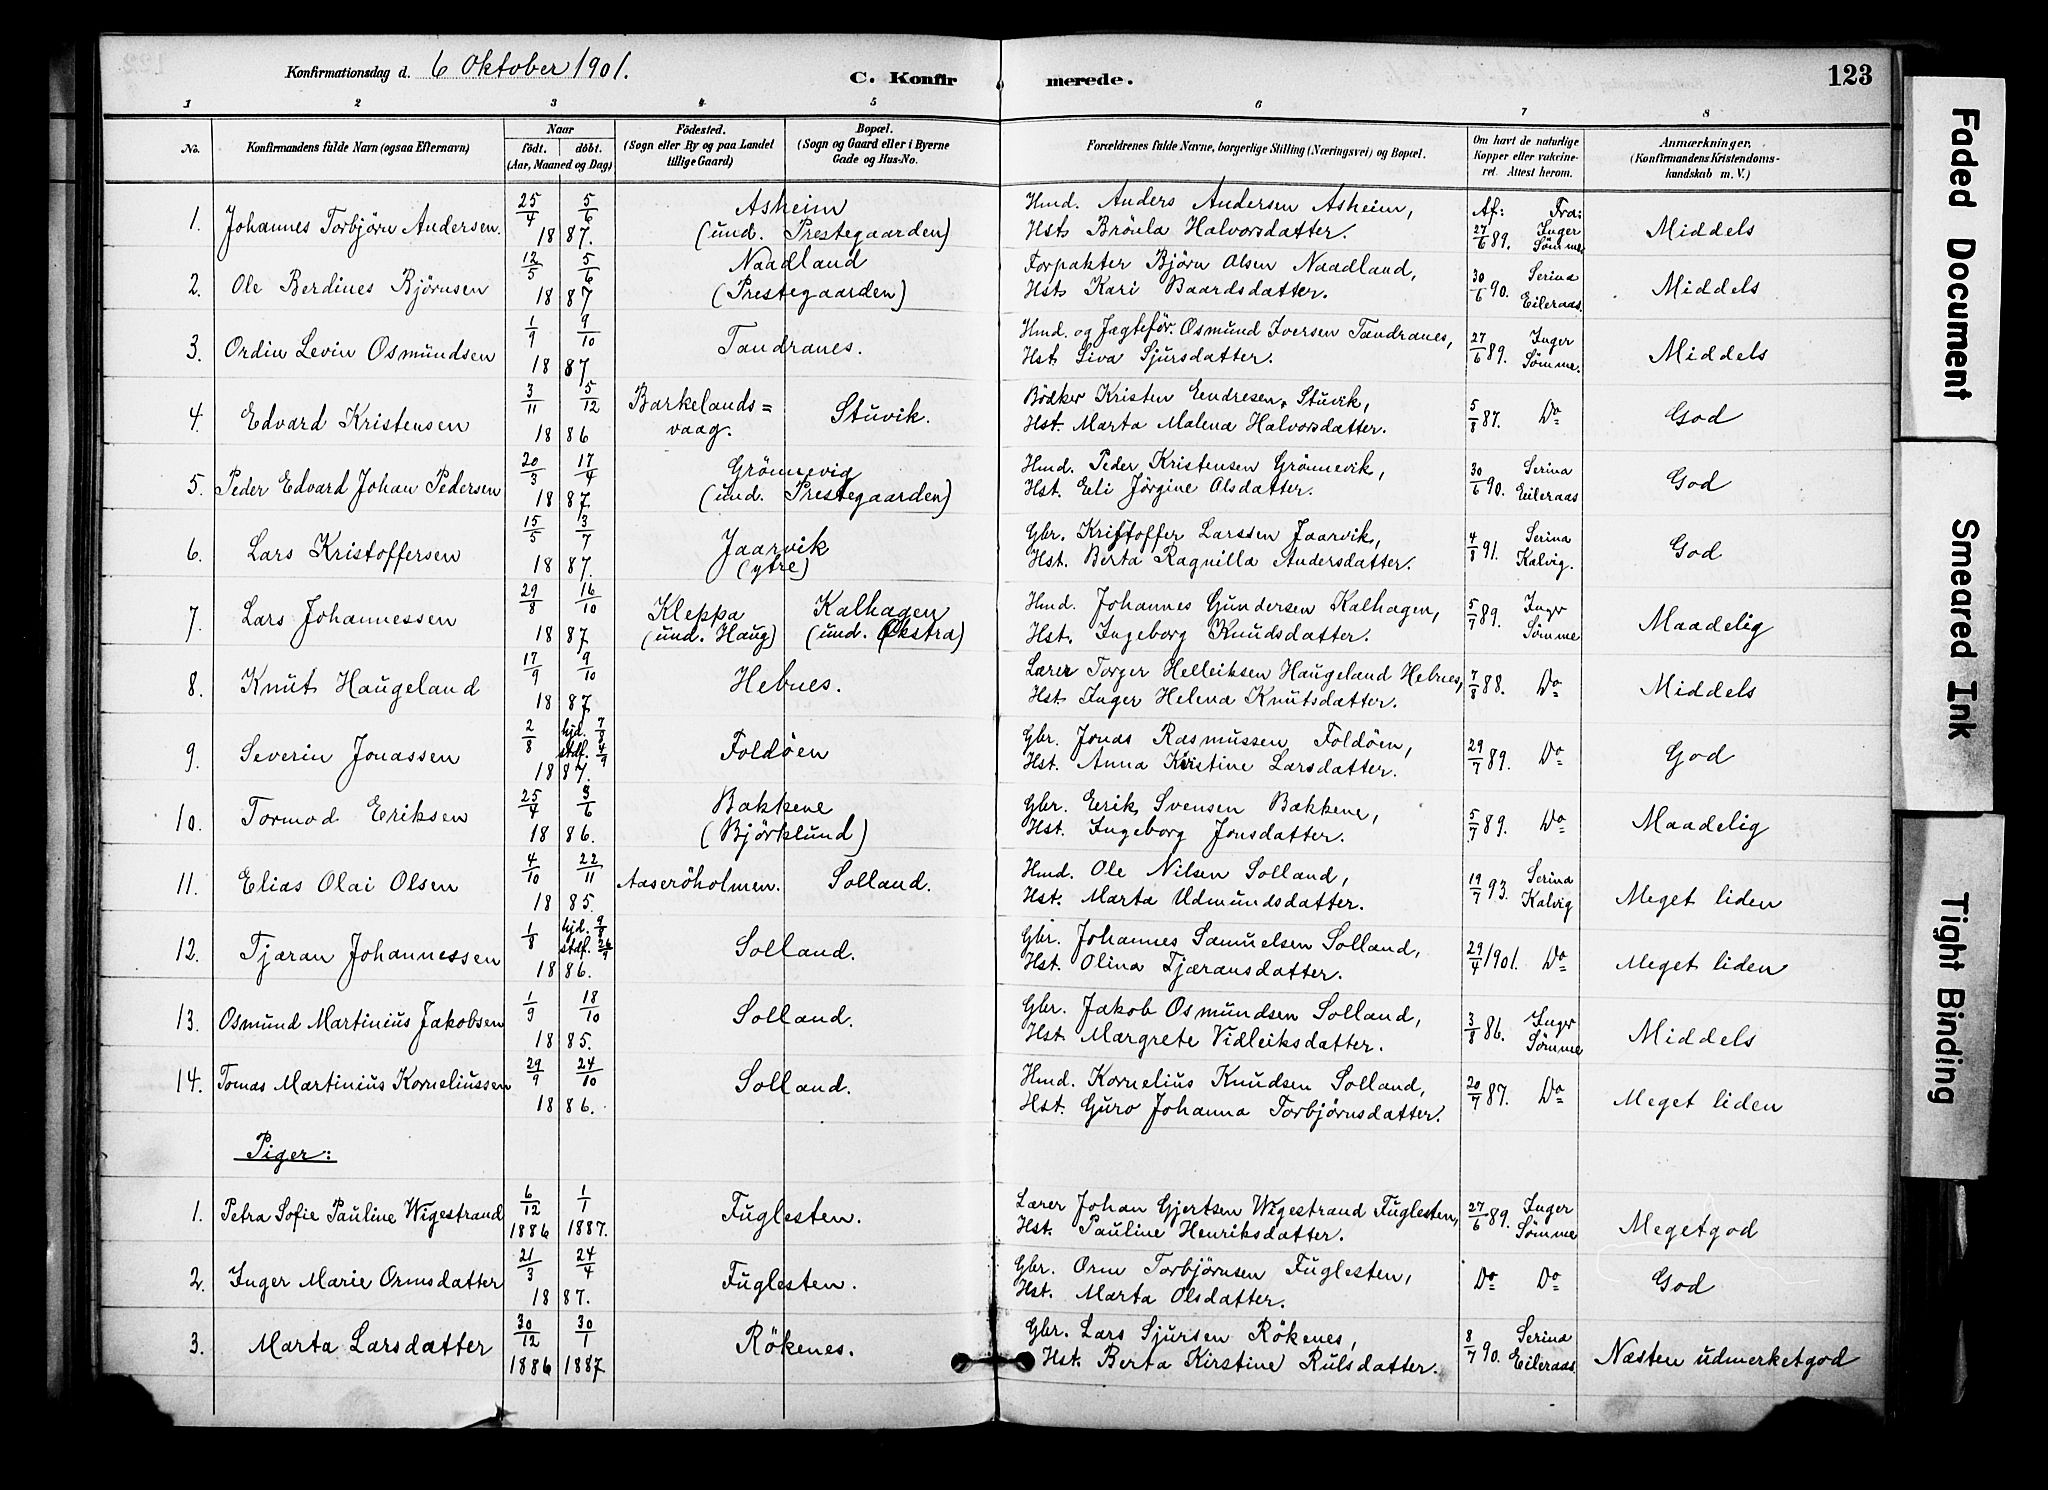 Konfirmationsdag d. 6 Oktober 1901.
C. Konfirmerede.
123
1 2 3 4 5 6 7 8
No.
Konfirmandens fulde Navn (ogsaa Efternavn)
Naar
født. døbt.
(Aar, Maaned og Dag)
Fødested.
(Sogn eller By og paa Landet
tillige Gaard)
Bopæl.
(Sogn og Gaard eller i Byerne
Gade og Hus-No.
Forældrenes fulde Navne, borgerlige Stilling (Næringsvei) og Bopæl.
Om havt de naturlige
Kopper eller vakcine-
ret. Attest herom.
Anmærkninger.
(Konfirmandens Kristendoms-
kundskab m. V.)
1. Johannes Torbjörn Andersen. 25/4 5/6 1887. Asheim (und. Prestegaarden) Hmd. Anders Andersen Asheim, Af: 27/6 89. Fra: Inger Sømme Middels
Hst. Brönla Halvorsdatter.
2. Ole Berdines Björnsen 12/5 5/6 1887 Naadland (Prestegaarden) Forpakter Björn Olsen Naadland, 30/6 90. Serina Eileraas. Middels
Hst. Kari Baardsdatter.
3. Ordin Levin Osmundsen 1/9 9/10 1887 Tandranes. Hmd. og Jagteför. Osmund Iversen Tandranes, 27/6 89. Inger Sømme. Middels
Hst. Siva Sjursdatter.
4. Edvard Kristensen 3/11 5/12 1886 Barkelands=vaag. Stuvik. Bödker Kristen Eendresen, Stuvik, 5/8 87. Do God
Hst. Marta Malena Halvorsdatter.
5. Peder Edvard Johan Pedersen 20/3 17/4 1887. Grönnevig (und. Prestegaarden) Hmd. Peder Kristensen Grönnevik, 30/6 90. Serina Eileraas God
Hst. Eli Jörgine Olsdatter.
6. Lars Kristoffersen 15/5 3/7 1887. Jaarvik (ytre) Gbr. Kristoffer Larssen Jaarvik, 4/8 91. Serina Kalvig. God
Hst. Berta Ragnilla Andersdatter.
7. Lars Johannessen 29/8 16/10 1887 Kleppa (und. Haug) Kalhagen (und. Økstra) Hmd. Johannes Gundersen Kalhagen, 5/7 89. Inger Sømme Maadelig
Hst. Ingeborg Knudsdatter.
8. Knut Haugeland 17/9 9/10 1887 Hebnes. Lærer Torger Helleiksen Haugeland Hebnes, 7/8 88. Do Middels
Hst. Inger Helena Knutsdatter.
9. Severin Jonassen 2/8 hjd. 7/8 stdf. 4/9 1887. Foldöen Gbr. Jonas Rasmussen Foldöen, 29/7 89. Do God
Hst. Anna Kristine Larsdatter.
10. Tormod Eriksen 25/4 3/6 1886. Bakkene (Björklund) Gbr. Eerik Svensen Bakkene, 5/7 89. Do Maadelig
Hst. Ingeborg Jonsdatter.
11. Elias Olai Olsen 4/10 22/11 1885. Aaseröholmen. Solland. Hmd. Ole Nilsen Solland, 19/7 93. Serina Kalvig Meget liden
Hst. Marta Udmundsdatter.
12. Tjæran Johannessen 1/8 hjd. 9/8 stdf. 26/9 1886. Solland. Gbr. Johannes Samuelsen Solland, 29/4 1901. Do Meget liden
Hst. Olina Tjæransdatter.
13. Osmund Martinius Jakobsen 1/9 18/10 1885. Solland. Gbr. Jakob Osmundsen Solland, 3/8 86. Inger Sømme Middels
Hst. Margrete Vidleiksdatter.
14. Tomas Martinius Korneliussen 29/9 24/10 1886. Solland. Hmd. Kornelius Knudsen Solland, 20/7 87. Do Meget liden
Hst. Guro Johanna Torbjørnsdatter.
Piger:
1. Petra Sofie Pauline Wigestrand 6/12 1886 1/1 1887. Fuglesten. Lærer Johan Gjertsen Wigestrand Fuglesten, 27/6 89. Inger Sømme Megetgod
Hst. Pauline Henriksdatter.
2. Inger Marie Ormsdatter 21/3 24/4 1887. Fuglesten. Gbr. Orm Torbjørnsen Fuglesten, Do Do God
Hst. Marta Olsdatter.
3. Marta Larsdatter 30/12 1886 30/1 1887 Rökenes. Gbr. Lars Sjursen Rökenes, 8/7 90. Serina Eileraas. Næsten udmerketgod
Hst. Berta Kirstine Rulsdatter.
Faded Document
Smeared Ink
Tight Binding